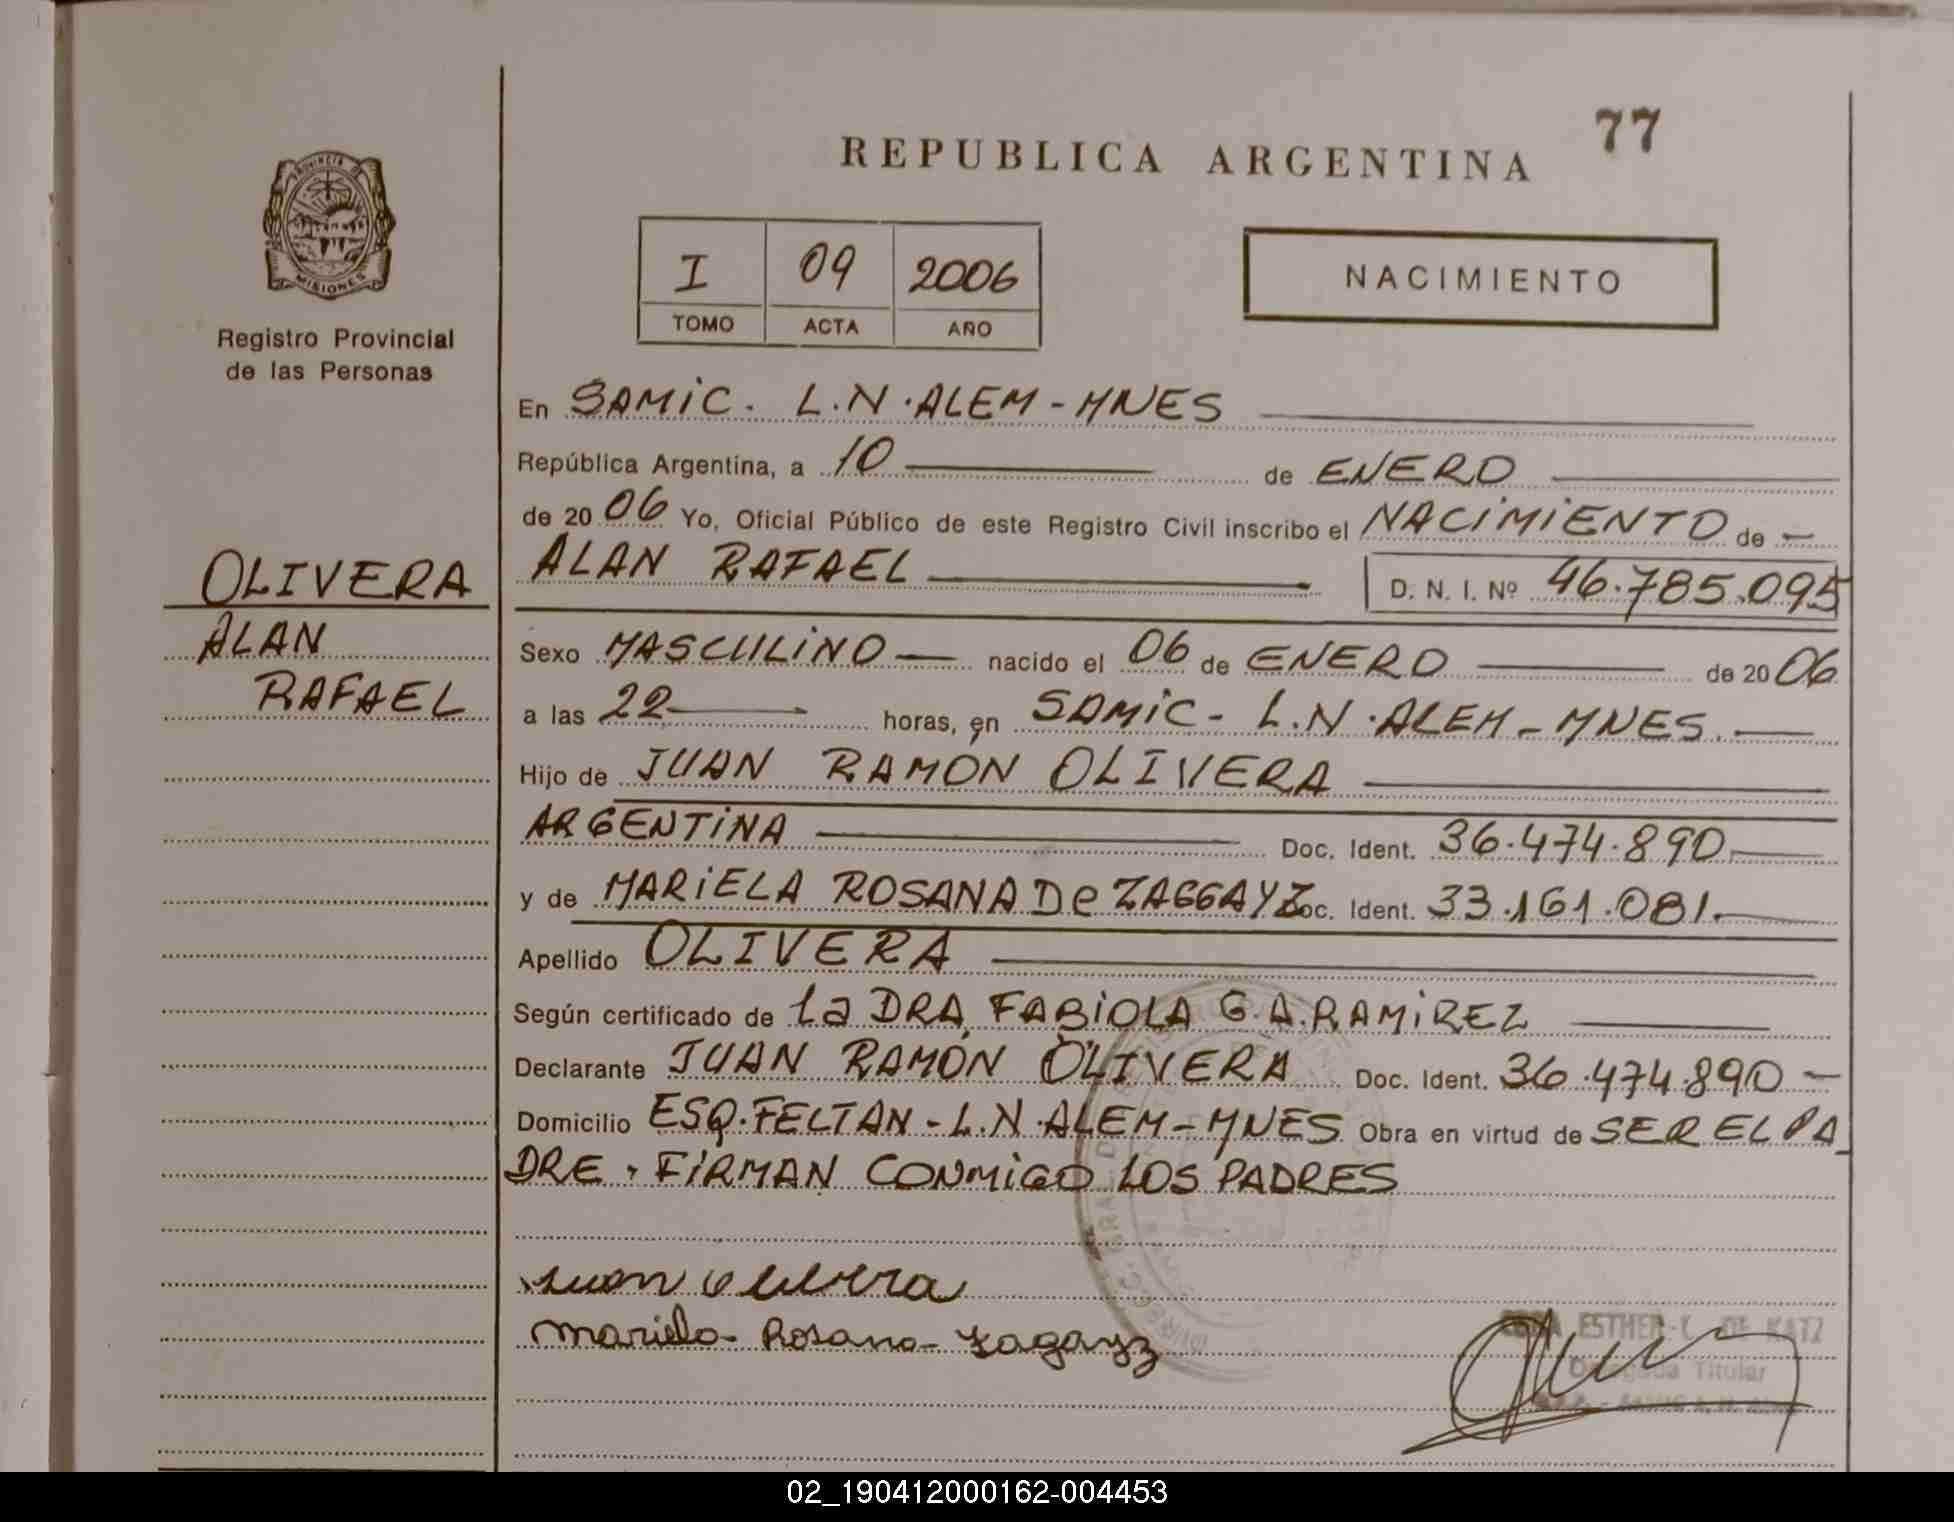 77
REPUBLICA ARGENTINA
PROVINCIA DE
MISIONES
Registro Provincial
de las Personas
I 09 2006
TOMO ACTA AÑO
NACIMIENTO
OLIVERA
ALAN
RAFAEL
En SAMIC. L.N.ALEM-MNES
República Argentina, a 10 de ENERO
de 2006 Yo, Oficial Público de este Registro Civil inscribo el NACIMIENTO de -
ALAN RAFAEL D. N. I. Nº 46.785.095
Sexo MASCULINO nacido el 06 de ENERO de 2006
a las 22 horas, en SAMIC - L.N.ALEM-MNES.
Hijo de JUAN RAMÓN OLIVERA
ARGENTINA Doc. Ident. 36.474.890
y de MARIELA ROSANA De ZAGGAYZ Doc. Ident. 33.161.081.
Apellido OLIVERA
Según certificado de la DRA. FABIOLA G.A.RAMIREZ
Declarante JUAN RAMÓN OLIVERA Doc. Ident. 36.474.890 -
Domicilio ESQ.FELTAN-L.N.ALEM-MNES Obra en virtud de SER EL PA_
DRE, FIRMAN CONMIGO LOS PADRES
Juan Olivera
Mariela Rosana Zagayz
ESTHER DE KATZ
Delegada Titular
02_190412000162-004453